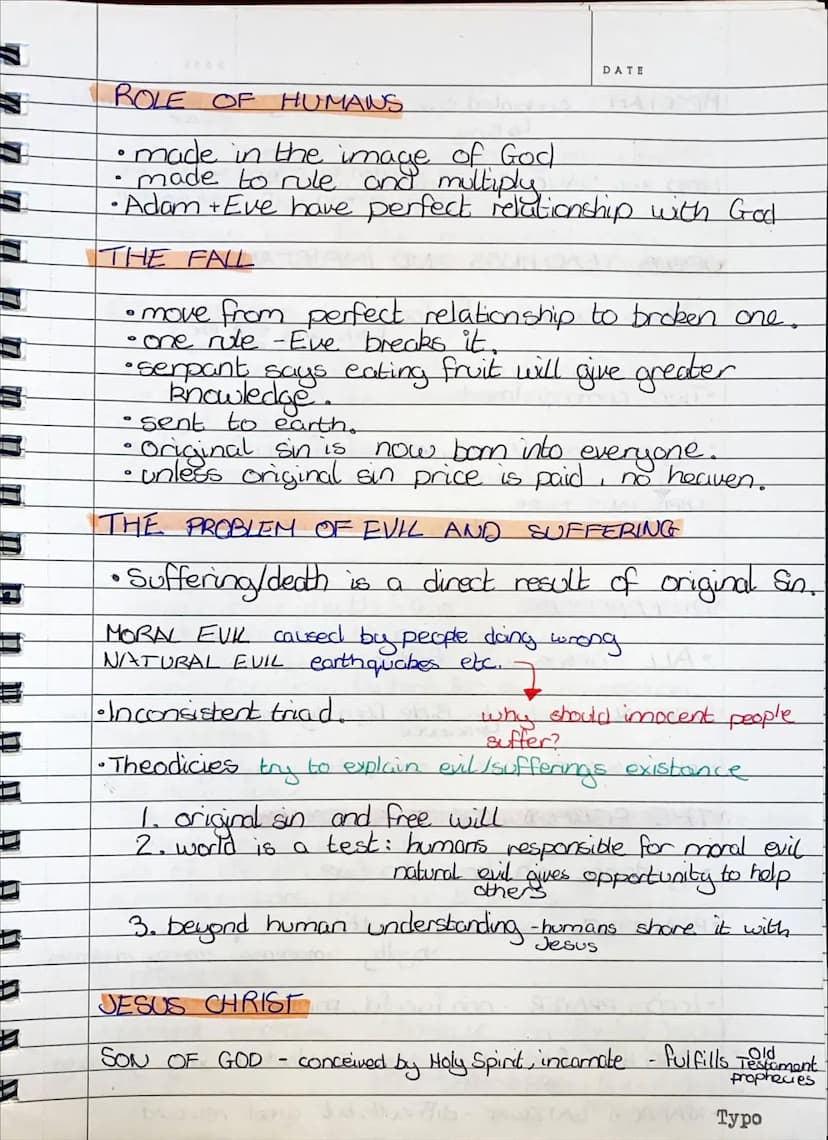 DATE
ROLE OF HUMANS
• made in the image of God
• made to rule and multiply
• Adam + Eve have perfect relationship with God
THE FALL
• move from perfect relationship to broken one.
• one rule - Eve breaks it.
• serpant says eating fruit will give greater
knowledge.
• sent to earth.
• original sin is now born into everyone.
• unless original sin price is paid, no heaven.
THE PROBLEM OF EVIL AND SUFFERING
• Suffering/death is a direct result of original Sin.
MORAL EVIL caused by people doing wrong
NATURAL EVIL earthquakes etc.
• Inconsistent triad. why should innocent people
suffer?
• Theodicies try to explain evil/sufferings existance
1. original sin and free will
2. world is a test: humans responsible for moral evil
natural evil gives opportunity to help
others
3. beyond human understanding - humans share it with
Jesus
JESUS CHRIST
SON OF GOD - conceived by Holy Spirit, incarnate - fulfills Old
Testament
prophecies
Typo